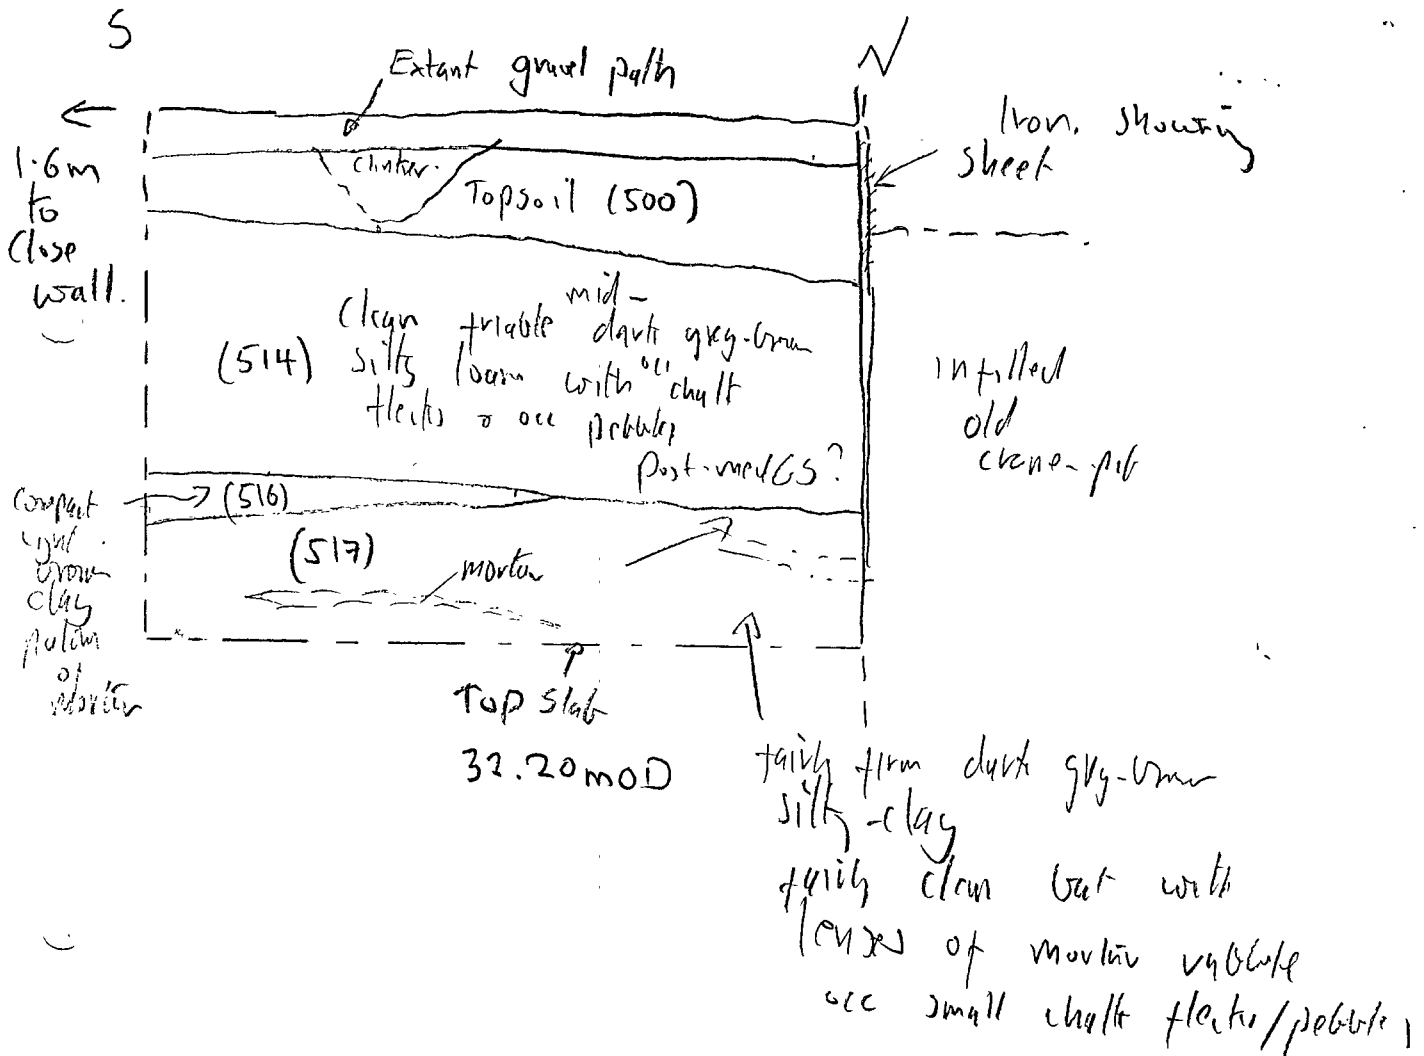 S
N
Extant gravel path
Iron shoring
sheet
1.6m
to
Close
wall.
clinker.
Topsoil (500)
mid-
Clean friable dark grey-brown
(514) silty loam with occ chalk
flecks & occ pebbles
Post-med GS?
infilled
old
crane-pit
compact
light
brown
clay
patch
of
mortar
(516)
(517)
mortar
Top slab
32.20mOD
fairly firm dark grey-brown
silty-clay
fairly clean but with
lenses of mortar rubble
occ small chalk flecks/pebbles